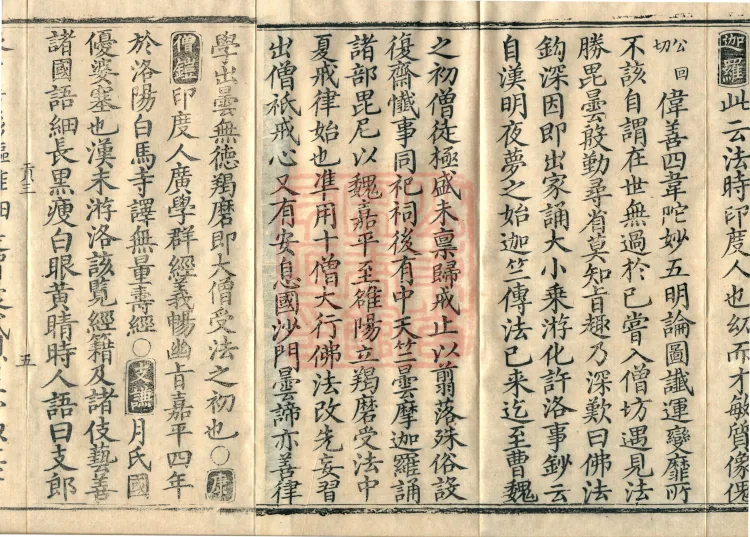 迦羅此云法時印度人也幼而才敏質像傀
公回切偉善四韋陀妙五明論圖讖運變靡所
不該自謂在世無過於己嘗入僧坊遇見法
勝毘曇殷勤尋省莫知旨趣乃深歎曰佛法
鈎深因即出家誦大小乘游化許洛事鈔云
自漢明夜夢之始迦竺傳法已來迄至曹魏
之初僧徒極盛未稟歸戒止以翦落殊俗設
復齋懺事同祀祠後有中天竺曇摩迦羅誦
諸部毘尼以魏嘉平至雒陽立羯磨受法中
夏戒律始也準用十僧大行佛法改先妄習
出僧祇戒心又有安息國沙門曇諦亦善律
學出曇無德羯磨即大僧受法之初也○康
僧鎧印度人廣學群經義暢幽旨嘉平四年
於洛陽白馬寺譯無量壽經○支謙月氏國
優婆塞也漢末游洛該覧經籍及諸伎藝善
諸國語細長黑瘦白眼黃睛時人語曰支郎
貢三 五